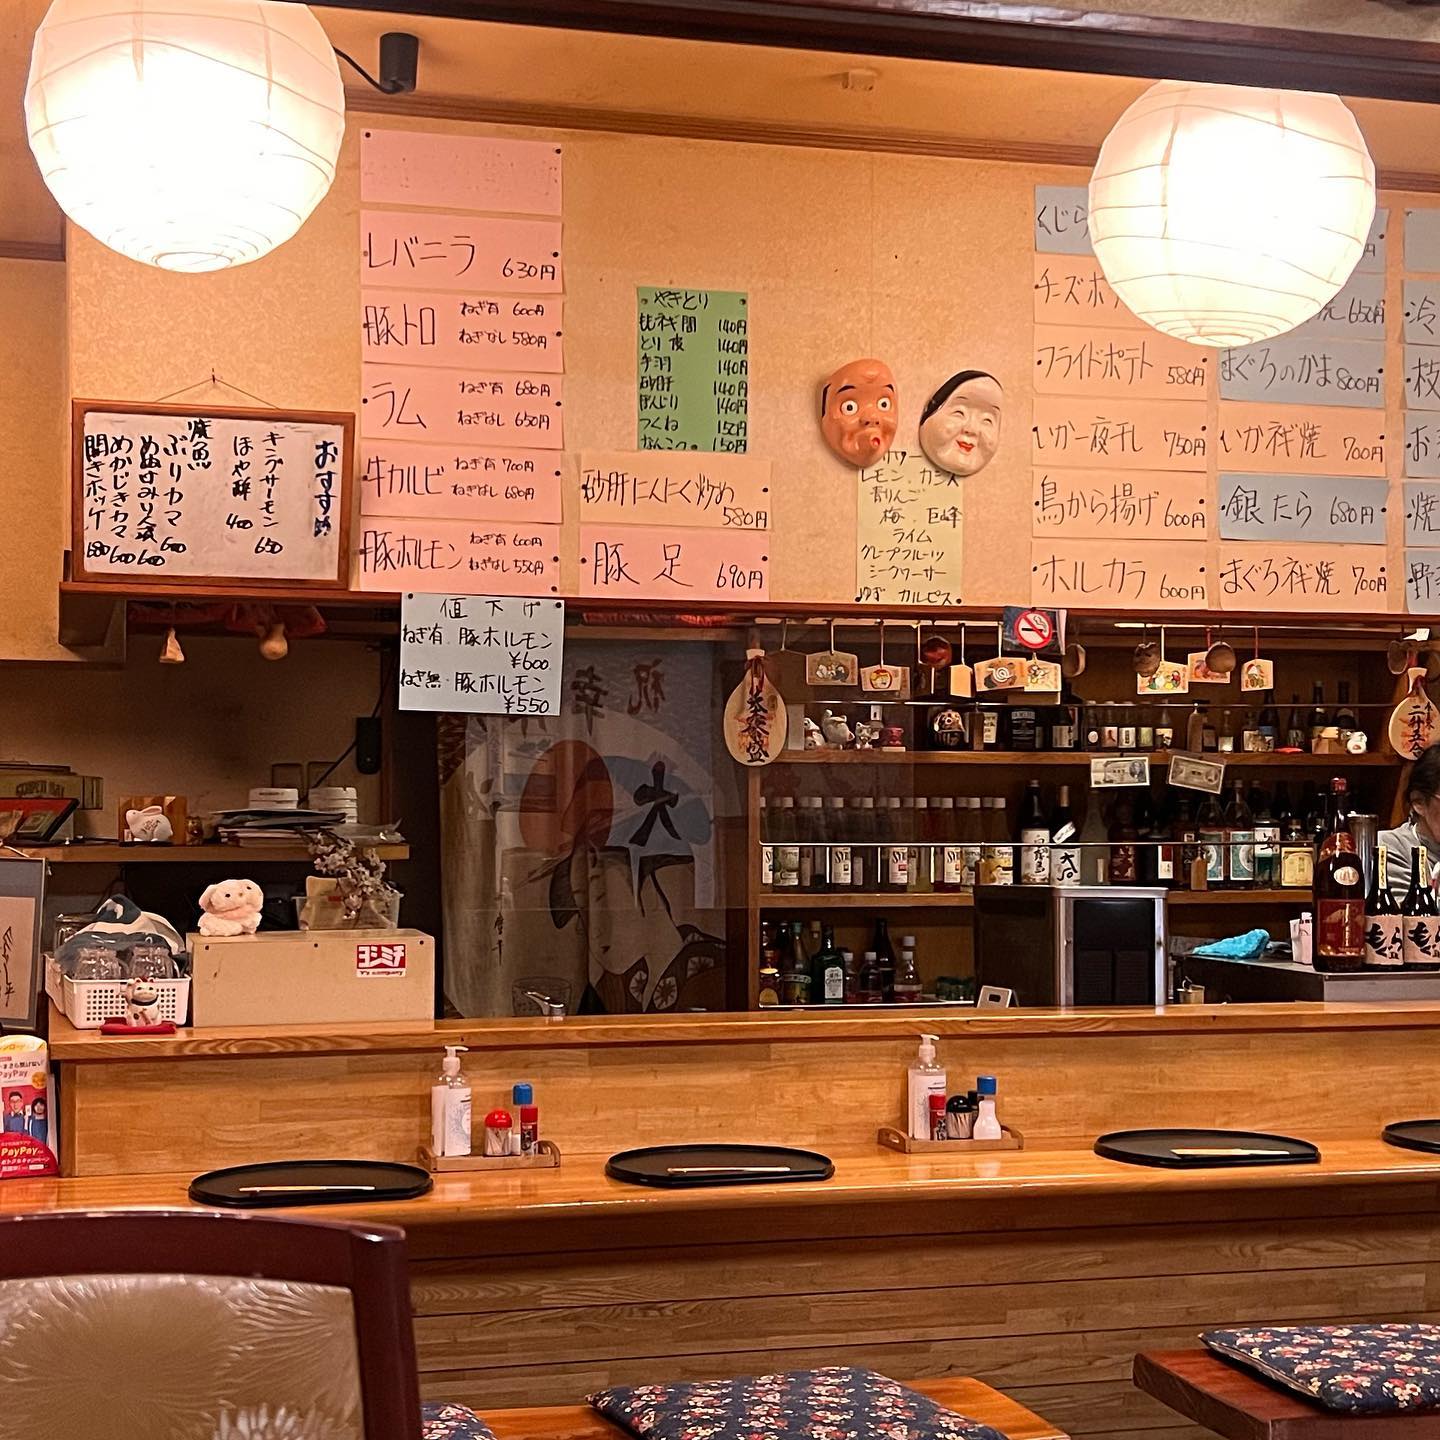 おすすめ
キングサーモン 650
ほや酢 400
焼魚
ぶりカマ 600
めかじきカマ 600
開きホッケ 680
レバニラ 630円
豚トロ ねぎ有 600円
ねぎなし 580円
ラム ねぎ有 680円
ねぎなし 650円
牛カルビ ねぎ有 700円
ねぎなし 680円
豚ホルモン ねぎ有 600円
ねぎなし 550円
値下げ
ねぎ有・豚ホルモン
¥600
ねぎ無・豚ホルモン
¥550
やきとり
ももネギ間 140円
とり皮 140円
手羽 140円
砂肝 140円
ぼんじり 140円
つくね 150円
なんこつ 150円
砂肝にんにく炒め
580円
豚足 690円
サワー
レモン、カシス
青りんご
梅、巨峰
ライム
グレープフルーツ
シークワーサー
ゆず カルピス
くじら
チーズポ
フライドポテト 580円
いか一夜干し 750円
鳥から揚げ 600円
ホルカラ 600円
650円
まぐろのかま 800円
いかネギ焼 700円
銀たら 680円
まぐろネギ焼 700円
冷
枝
お
焼
野
祝
大
ヨシミチ
Y's company
PayPay
PayPay